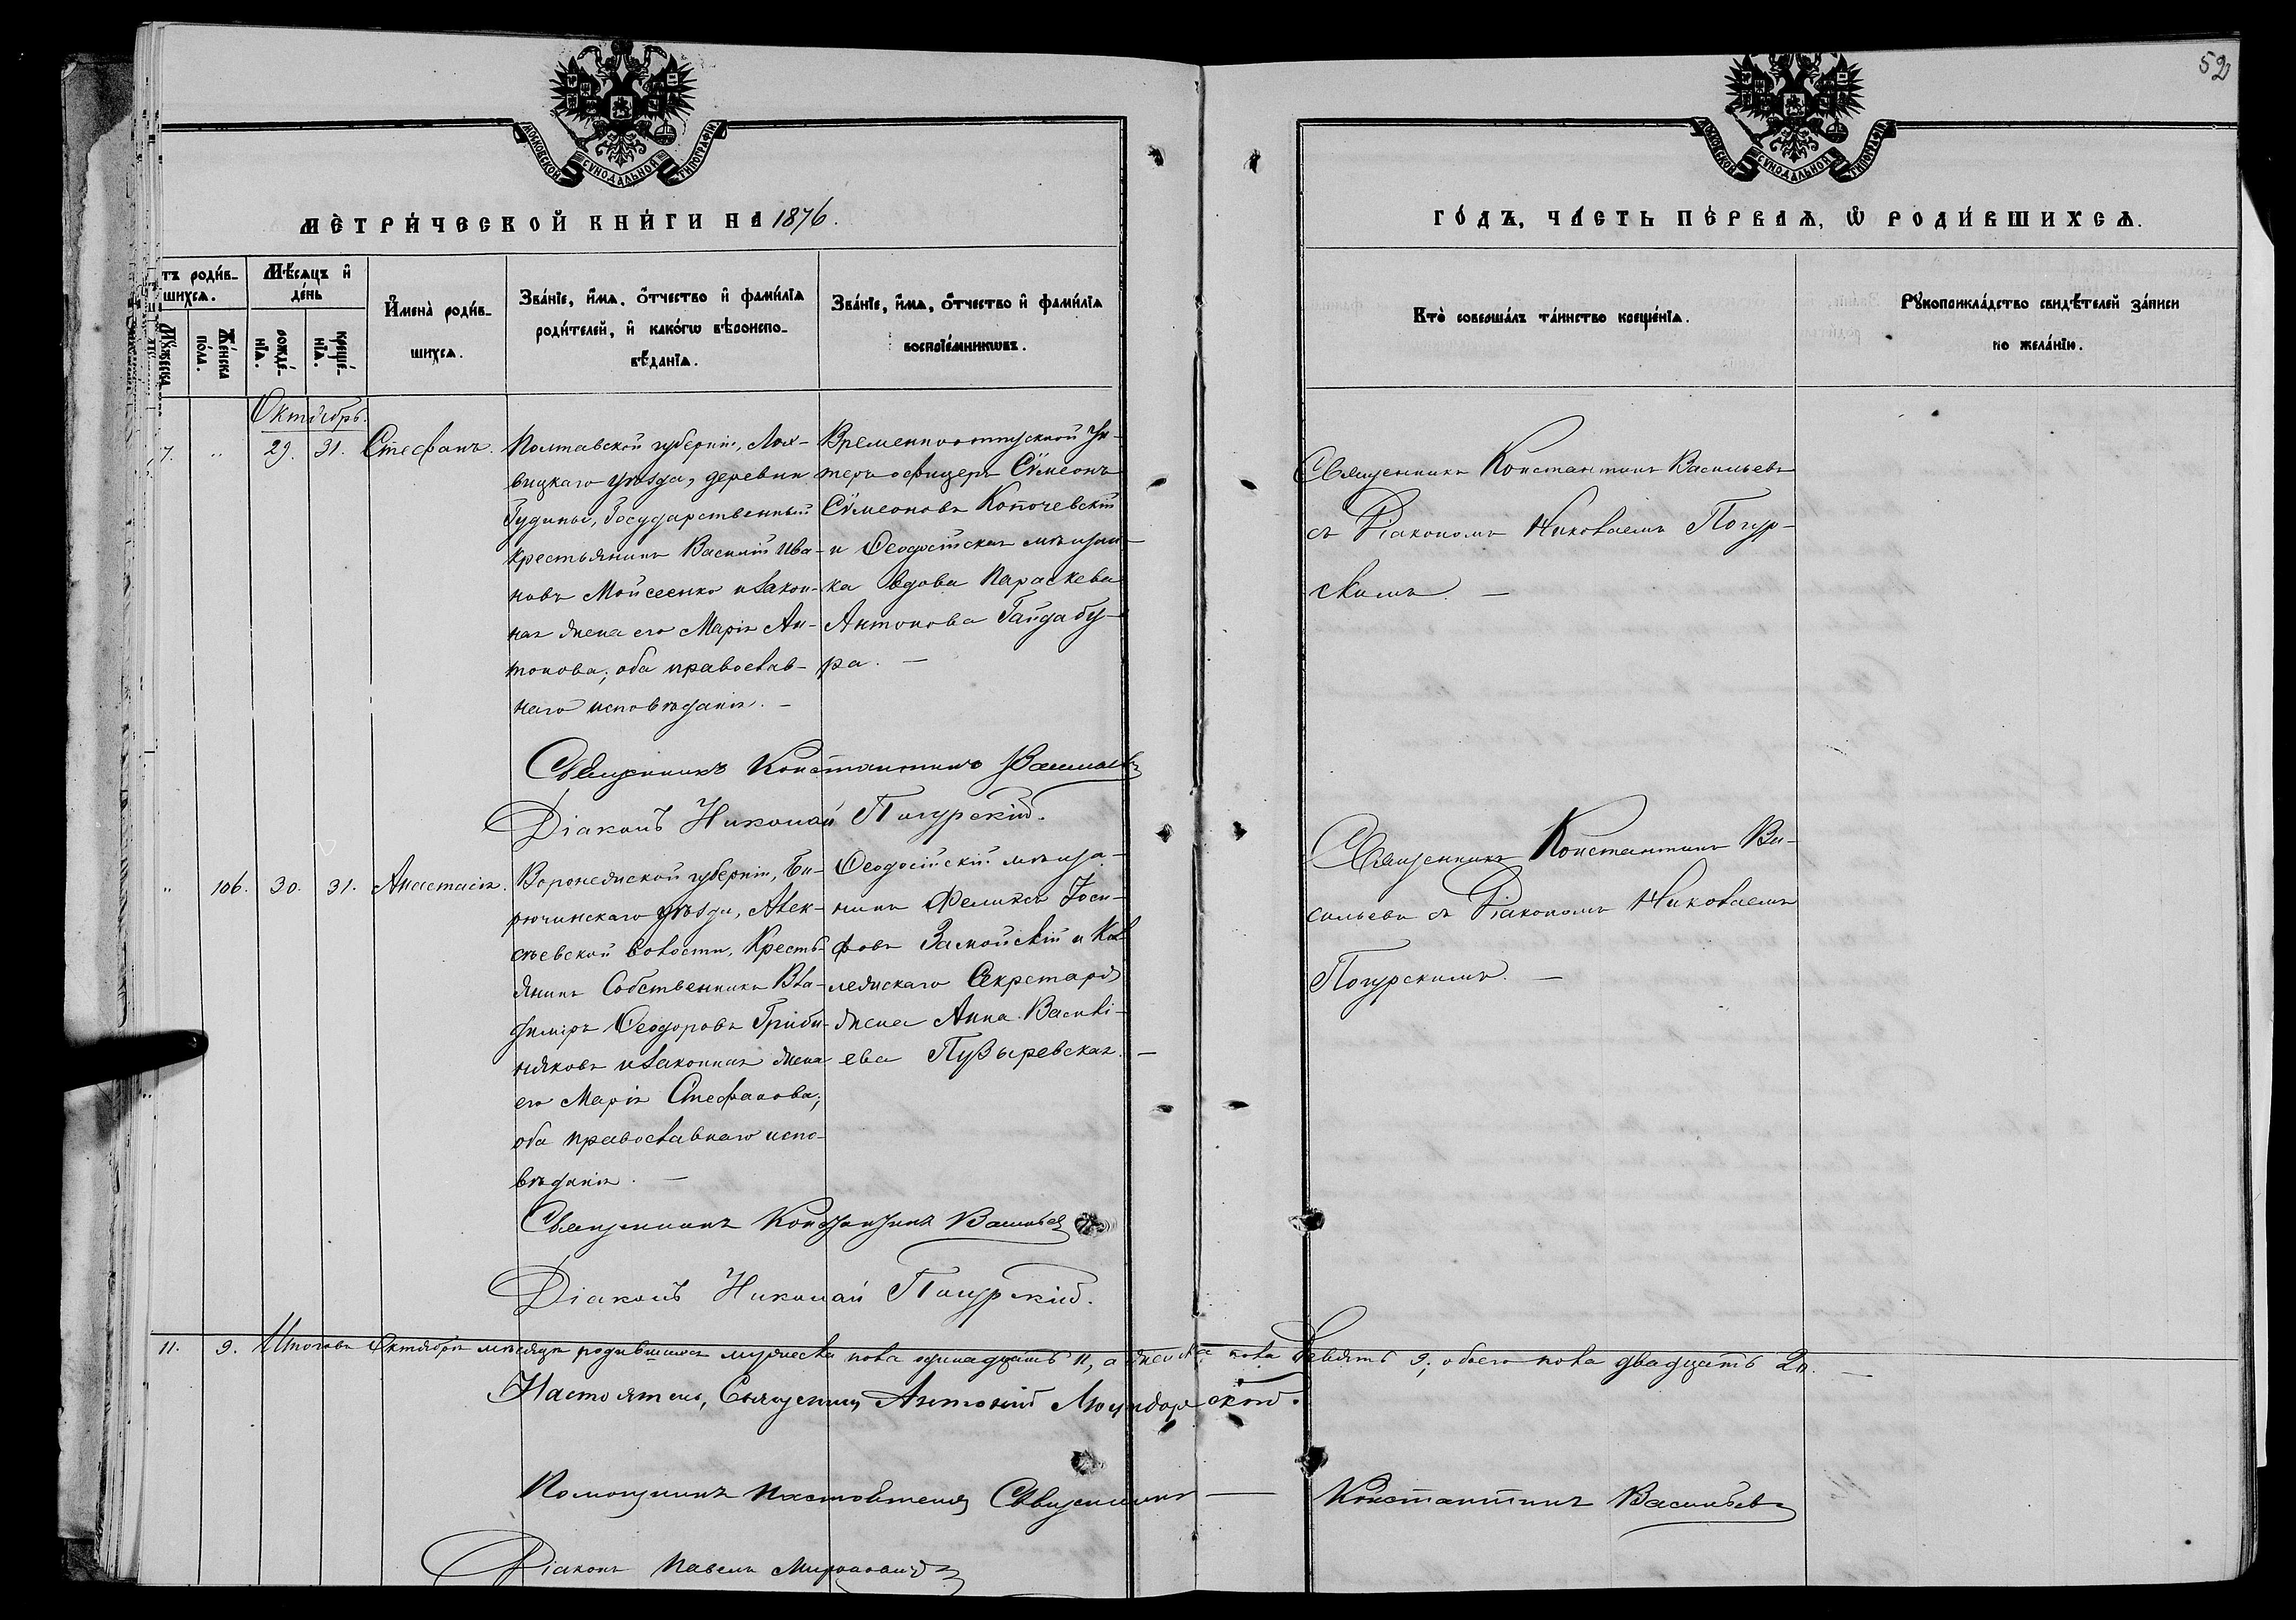 52
МОСКОВСКОЙ СѴНОДАЛЬНОЙ ТИПОГРАФІИ
МОСКОВСКОЙ СѴНОДАЛЬНОЙ ТИПОГРАФІИ
МЕТРИЧЕСКОЙ КНИГИ НА 1876.
ГОДЪ, ЧАСТЬ ПЕРВАЯ, Ѡ РОДИВШИХСЯ.
тъ родив-
шихся.
Мѣсяцъ и
день
Мужеска
Женска
пола.
рожде-
нія.
креще-
нія.
Имена родив-
шихся.
Званіе, имя, отчество и фамилія
родителей, и какогѡ вѣроиспо-
вѣданія.
Званіе, имя, отчество и фамилія
воспріемникѡвъ.
Кто совершалъ таинство крещенія.
Рукоприкладство свидѣтелей записи
по желанію.
Октябрь.
7. " 29. 31. Стефанъ.
Полтавской губерніи, Лох-
вицкаго уѣзда, деревни
Гудины, Государственный
крестьянинъ Василій Ива-
новъ Мойсеенко и закон-
ная жена его Марія Ан-
тонова; оба православ-
наго исповѣданія. –
Временноотпускной Ун-
теръ офицеръ Сѵмеонъ
Сѵмеоновъ Копочевскій
и Ѳеодосійская мѣщан-
ка вдова Параскева
Антонова Гайдабу-
ра. –
Священникъ Константинъ Васильевъ
съ Діакономъ Николаемъ Погур-
скимъ. –
Священникъ Константинъ Васильевъ
Діаконъ Николай Погурскій.
" 106. 30. 31. Анастасія.
Воронежской губерніи, Би-
рючинскаго уѣзда, Алек-
сѣевской волости, Кресть-
янинъ Собственникъ Вла-
диміръ Ѳеодоровъ Гриби-
няковъ и законная жена
его Марія Стефанова;
оба православнаго испо-
вѣданія. –
Ѳеодосійскій мѣща-
нинъ Феликсъ Іоси-
фовъ Замойскій и Кол-
лежскаго Секретаря
жена Анна Василі-
ева Пузыревская. –
Священникъ Константинъ Ва-
сильевъ съ Діакономъ Николаемъ
Погурскимъ. –
Священникъ Константинъ Васильев
Діаконъ Николай Погурскій.
11. 9. Итого въ Октябрѣ мѣсяцѣ родившихся мужеска пола одинадцать 11, а женска пола девять 9; обоего пола двадцать 20. –
Настоятель, Священникъ Антоній
Помощникъ Настоятеля Священникъ – Константинъ Васильевъ
Діаконъ Павелъ Мироновичъ